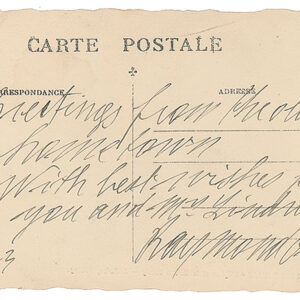 CARTE POSTALE
RESPONDANCE ADRESSE
reetings from the ol
hometown
With best wishes
you and Mrs.
Raymond